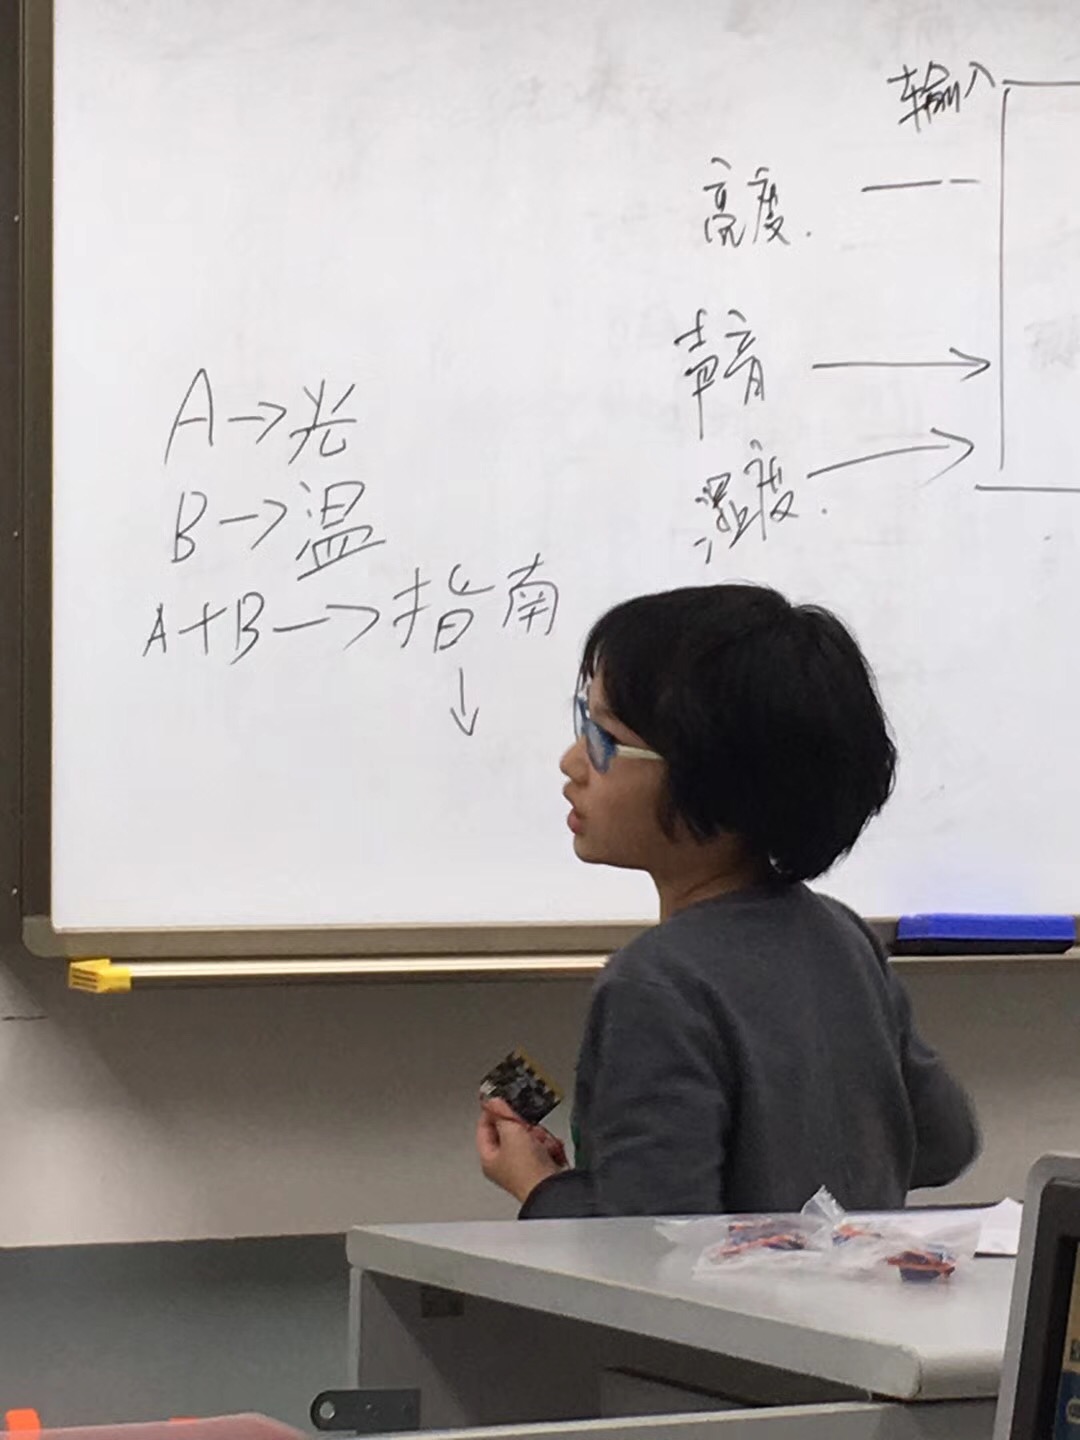 输入
亮度.
声音
湿度.
A→光
B→温
A+B→指南
↓